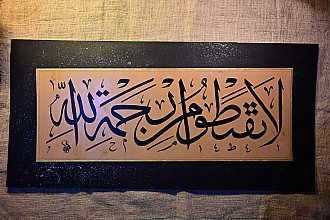 لا تقنطوا من رحمة الله